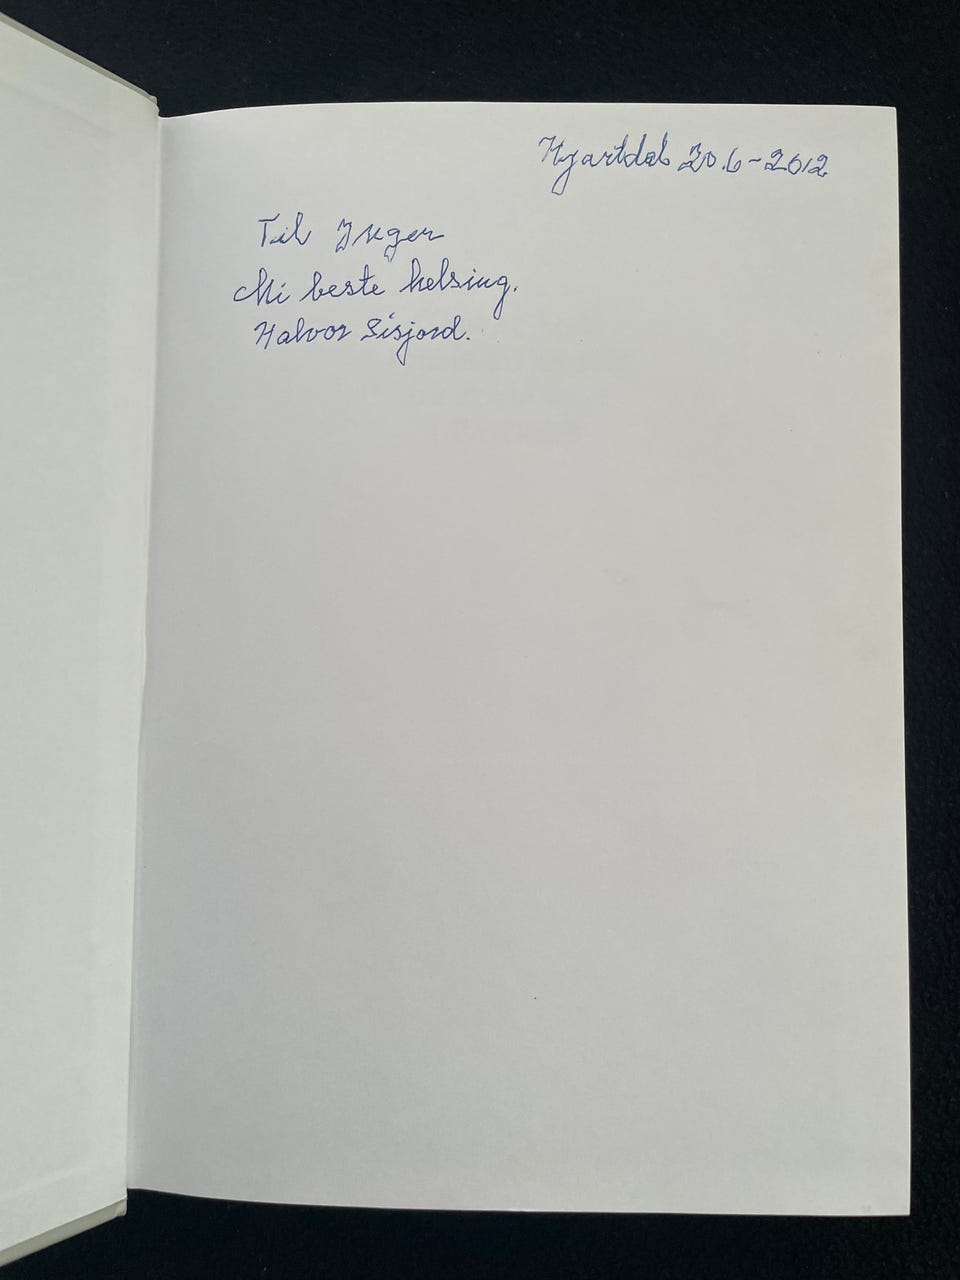 Hjartdal 20.6-2012
Til Inger
Mi beste helsing.
Halvor Sisjord.